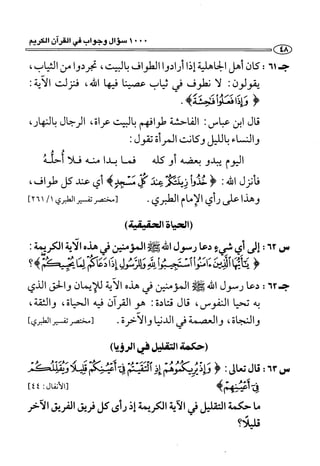 ١٠٠٠ سؤال وجواب في القرآن الكريم
٤٨
جـ٦١: كان أهل الجاهلية إذا أرادوا الطواف بالبيت، تجردوا من الثياب،
يقولون: لا نطوف في ثياب عصينا فيها الله، فنزلت الآية:
﴿ وَإِذَا فَعَلُوا فَاحِشَةً ﴾.
قال ابن عباس: الفاحشة طوافهم بالبيت عراة، الرجال بالنهار،
والنساء بالليل وكانت المرأة تقول:
اليوم يبدو بعضه أو كله فما بدا منه فلا أُحلُّهُ
فأنزل الله: ﴿ خُذُوا زِينَتَكُمْ عِندَ كُلِّ مَسْجِدٍ ﴾ أي عند كل طواف،
وهذا على رأي الإمام الطبري. [مختصر تفسير الطبري ٢٦١/١]
(الحياة الحقيقية)
س ٦٢: إلى أي شيء دعا رسول الله ﷺ المؤمنين في هذه الآية الكريمة:
﴿ يَا أَيُّهَا الَّذِينَ ءَامَنُوا اسْتَجِيبُوا لِلَّهِ وَلِلرَّسُولِ إِذَا دَعَاكُمْ لِمَا يُحْيِيكُمْ ﴾؟
جـ٦٢: دعا رسول الله ﷺ المؤمنين في هذه الآية للإيمان والحق الذي
به تحيا النفوس، قال قتادة: هو القرآن فيه الحياة، والثقة،
والنجاة، والعصمة في الدنيا والآخرة. [مختصر تفسير الطبري]
(حكمة التقليل في الرؤيا)
س ٦٣: قال تعالى: ﴿ وَإِذْ يُرِيكُمُوهُمْ إِذِ الْتَقَيْتُمْ فِي أَعْيُنِكُمْ قَلِيلًا وَيُقَلِّلُكُمْ
فِي أَعْيُنِهِمْ ﴾ [الأنفال: ٤٤]
ما حكمة التقليل في الآية الكريمة إذ رأى كل فريق الفريق الآخر
قليلاً؟